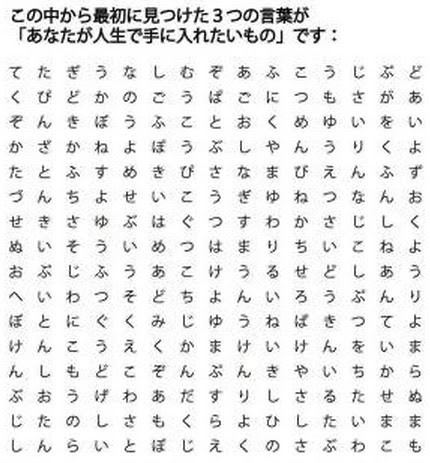 この中から最初に見つけた３つの言葉が
「あなたが人生で手に入れたいもの」です：
て た ぎ う な し む ぞ あ ふ こ う じ ぶ ど
く び ど か の ご う ぱ ご に つ も さ が あ
ぞ ん き ぼ う ふ こ と お く め ゆ い を い
か ざ か ね よ ぽ う ぶ し や ん う り く よ
た と ふ す め き び さ な ま び え ん ふ ず
づ ん ち よ せ い こ う ぎ ゆ ね つ な ん お
せ き さ ゆ ぶ は ぐ つ す わ か さ じ し く
ぬ い そ う い め つ は ま り ち い こ ね よ
お ぶ じ ふ う あ こ け う る せ ど し あ う
へ い わ つ そ ど ち よ ん い ろ う ぷ ん り
ぼ と に ぐ く み じ ゆ う ね ば き つ て よ
け ん こ う え く か ま け い け ん を い ま
ん し も ど こ ぞ ん ぷ ん き や い ち か ら
ぶ お う げ わ あ だ す り し さ る た せ ぬ
じ た の し さ も く ら よ ひ し た い ま ま
し ん ら い と ぼ じ え く の さ ぶ わ こ も